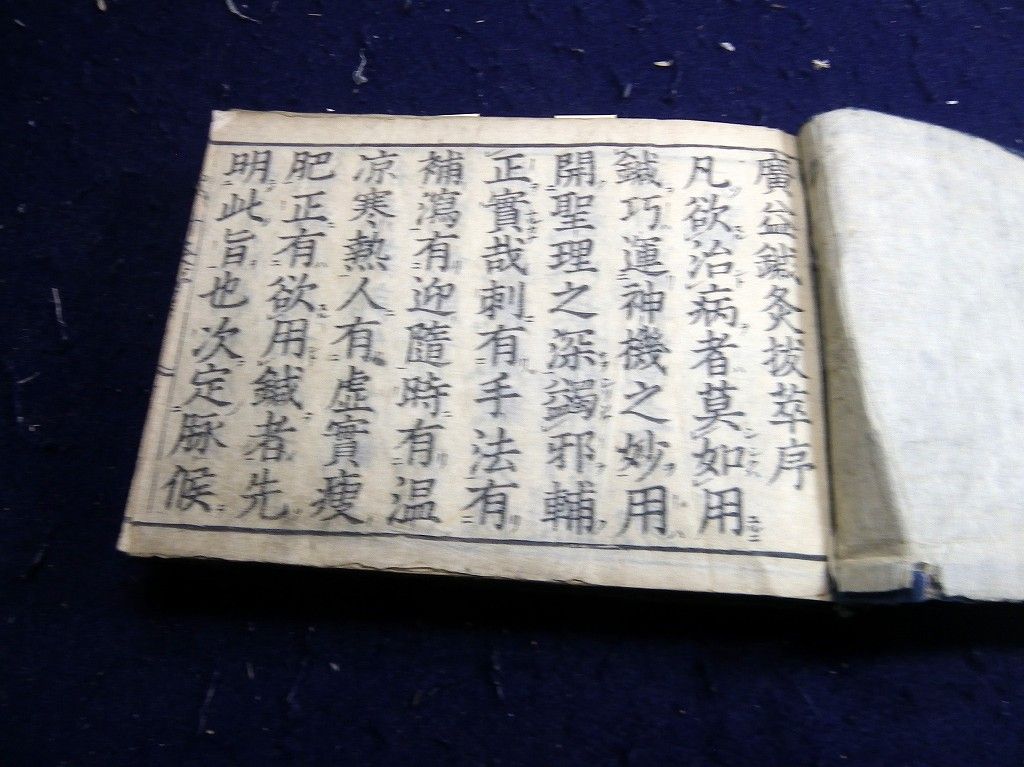 廣益鍼灸拔萃序
凡欲治病者莫如用
鍼巧運神機之妙用
開聖理之深蠲邪輔
正實哉刺有手法有
補瀉有迎隨時有温
凉寒熱人有虛實瘦
肥正有欲用鍼者先
明此旨也次定脉候